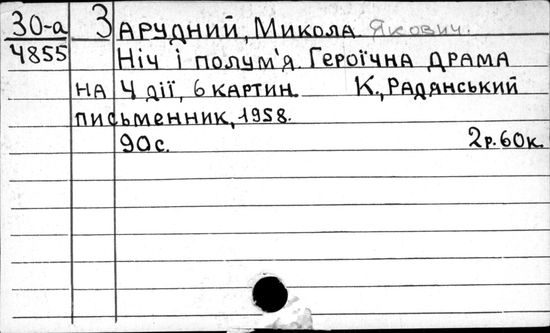 30-а
4855
Зарудний, Микола Якович.
Ніч і полум'я Героїчна драма
на 4 дії, 6 картин. К., Радянський
письменник, 1958.
90с. 2р.60к.